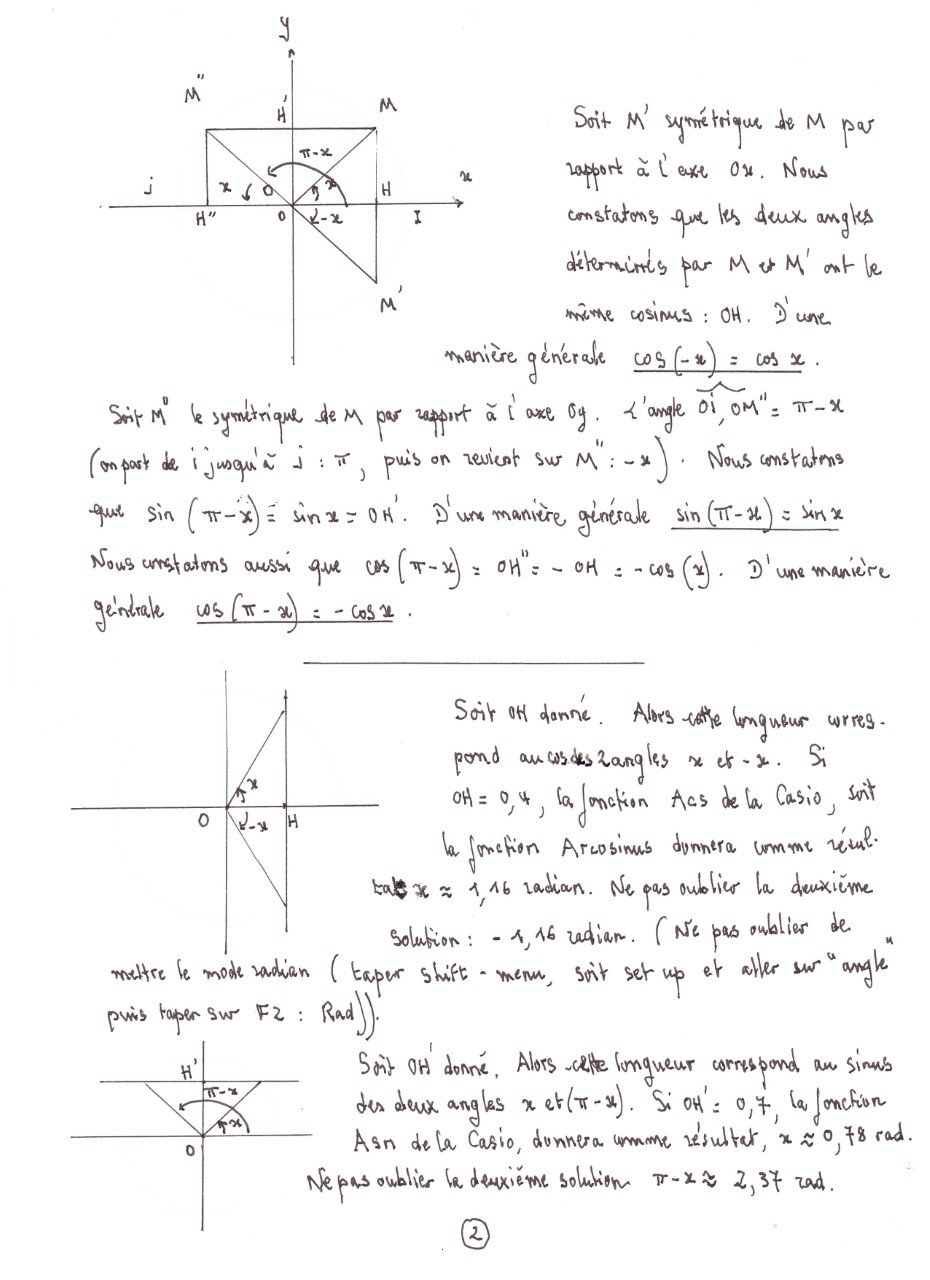 y
M''
H'
M
π-x
j
x
O
x
H
x
H''
O
-x
I
M'
Soit M' symétrique de M par
rapport à l'axe Ox. Nous
constatons que les deux angles
déterminés par M et M' ont le
même cosinus : OH. D'une
manière générale cos(-x) = cos x.
Soit M'' le symétrique de M par rapport à l'axe Oy. L'angle Oi, OM'' = π-x
(on part de i jusqu'à j : π, puis on revient sur M'' : -x). Nous constatons
que sin (π-x) = sin x = OH'. D'une manière générale sin(π-x) = sin x
Nous constatons aussi que cos (π-x) = OH'' = - OH = - cos (x). D'une manière
générale cos (π-x) = - cos x.
Soit OH donné. Alors cette longueur corres-
pond au cos des 2 angles x et -x. Si
OH = 0,4, la fonction Acs de la Casio, soit
la fonction Arcosinus donnera comme résul-
tat x ≈ 1,16 radian. Ne pas oublier la deuxième
solution : - 1,16 radian. (Ne pas oublier de
mettre le mode radian (taper shift - menu, soit set up et aller sur "angle"
puis taper sur F2 : Rad)).
x
O
-x
H
H'
π-x
x
O
Soit OH' donné, Alors cette longueur correspond au sinus
des deux angles x et (π-x). Si OH' = 0,7, la fonction
Asn de la Casio, donnera comme résultat, x ≈ 0,78 rad.
Ne pas oublier la deuxième solution π-x ≈ 2,37 rad.
2